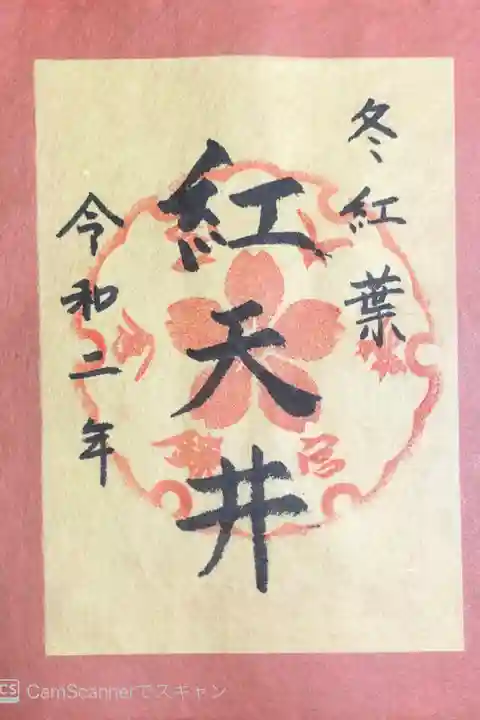 冬紅葉
紅天井
令和二年
CS CamScannerでスキャン